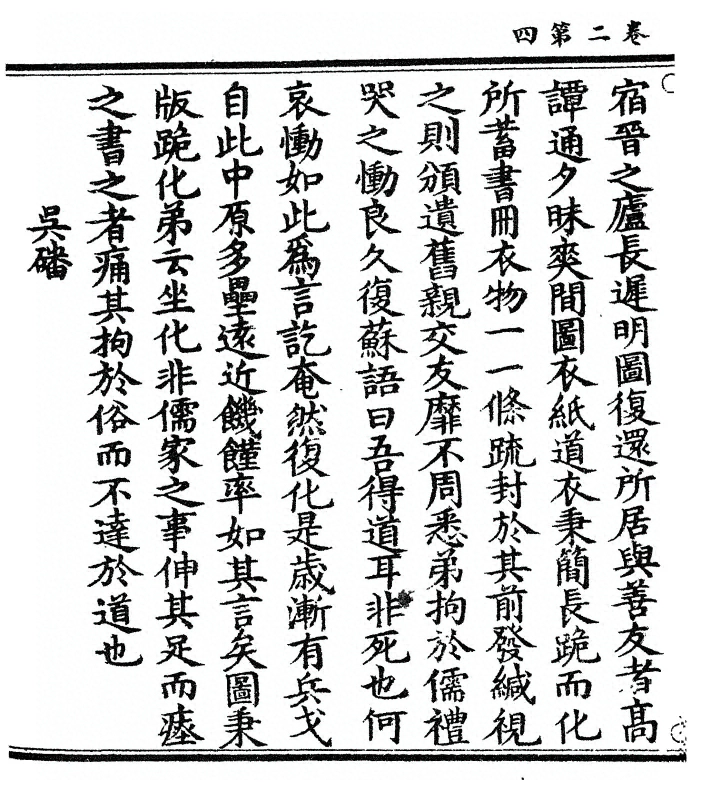 卷二第四
宿晉之廬長遲明圖復還所居與善友者高
譚通夕昧爽間圖衣紙道衣秉簡長跪而化
所蓄書冊衣物一一條䟽封於其前發緘視
之則頒遺舊親交友靡不周悉弟拘於儒禮
哭之慟良久復蘇語曰吾得道耳非死也何
哀慟如此爲言訖奄然復化是歲漸有兵戈
自此中原多壘遠近饑饉率如其言矣圖秉
版跪化弟云坐化非儒家之事伸其足而瘞
之書之者痛其拘於俗而不達於道也
吳磻